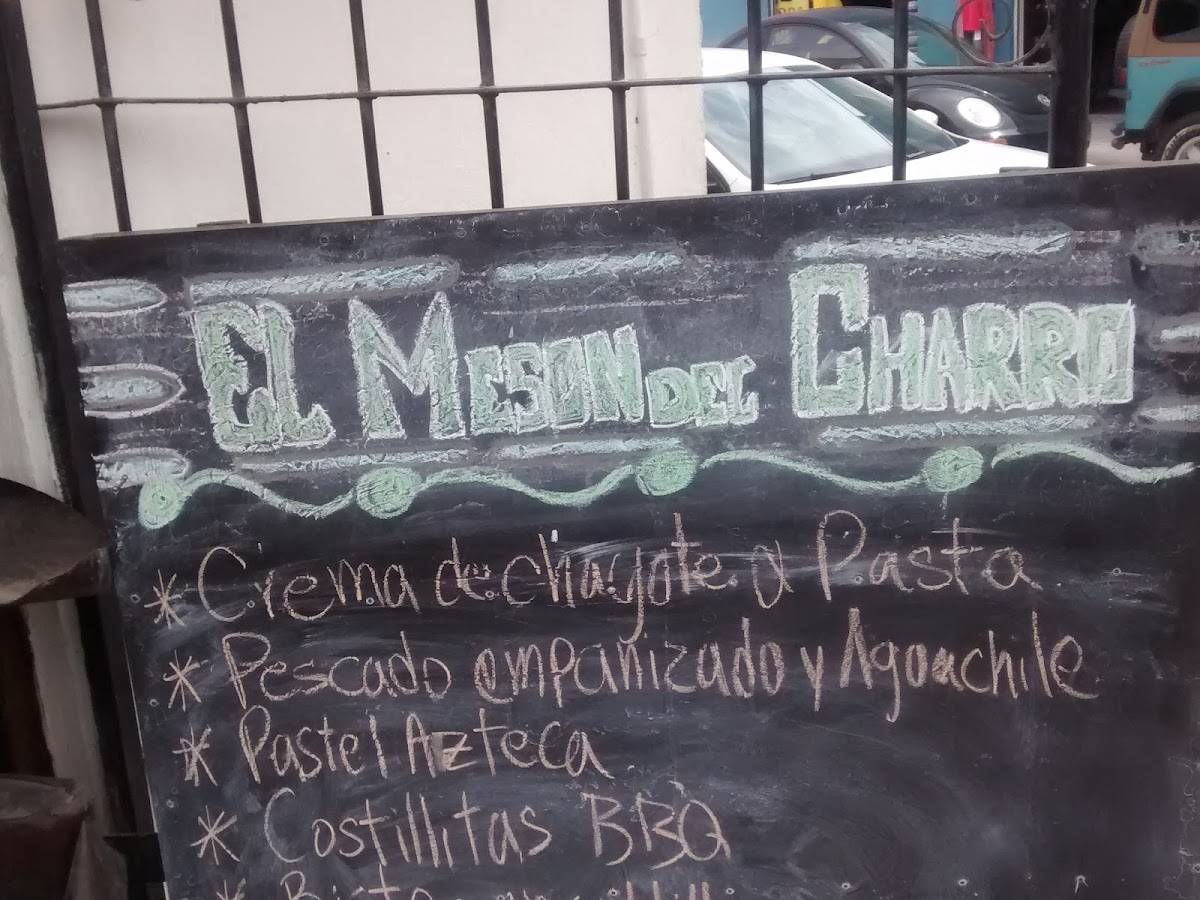 EL MESON DEL CHARRO
* Crema de chayote y Pasta
* Pescado empanizado y Aguachile
* Pastel Azteca
* Costillitas BBQ